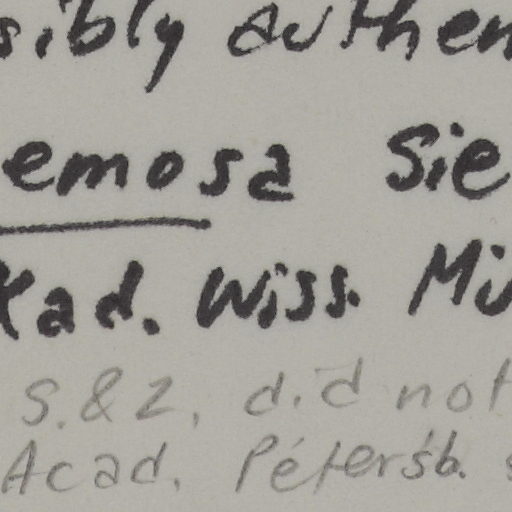 sibly authen
emosa Sie
Kad. Wiss. Mü
S. & Z. did not
Acad. Pétersb. s